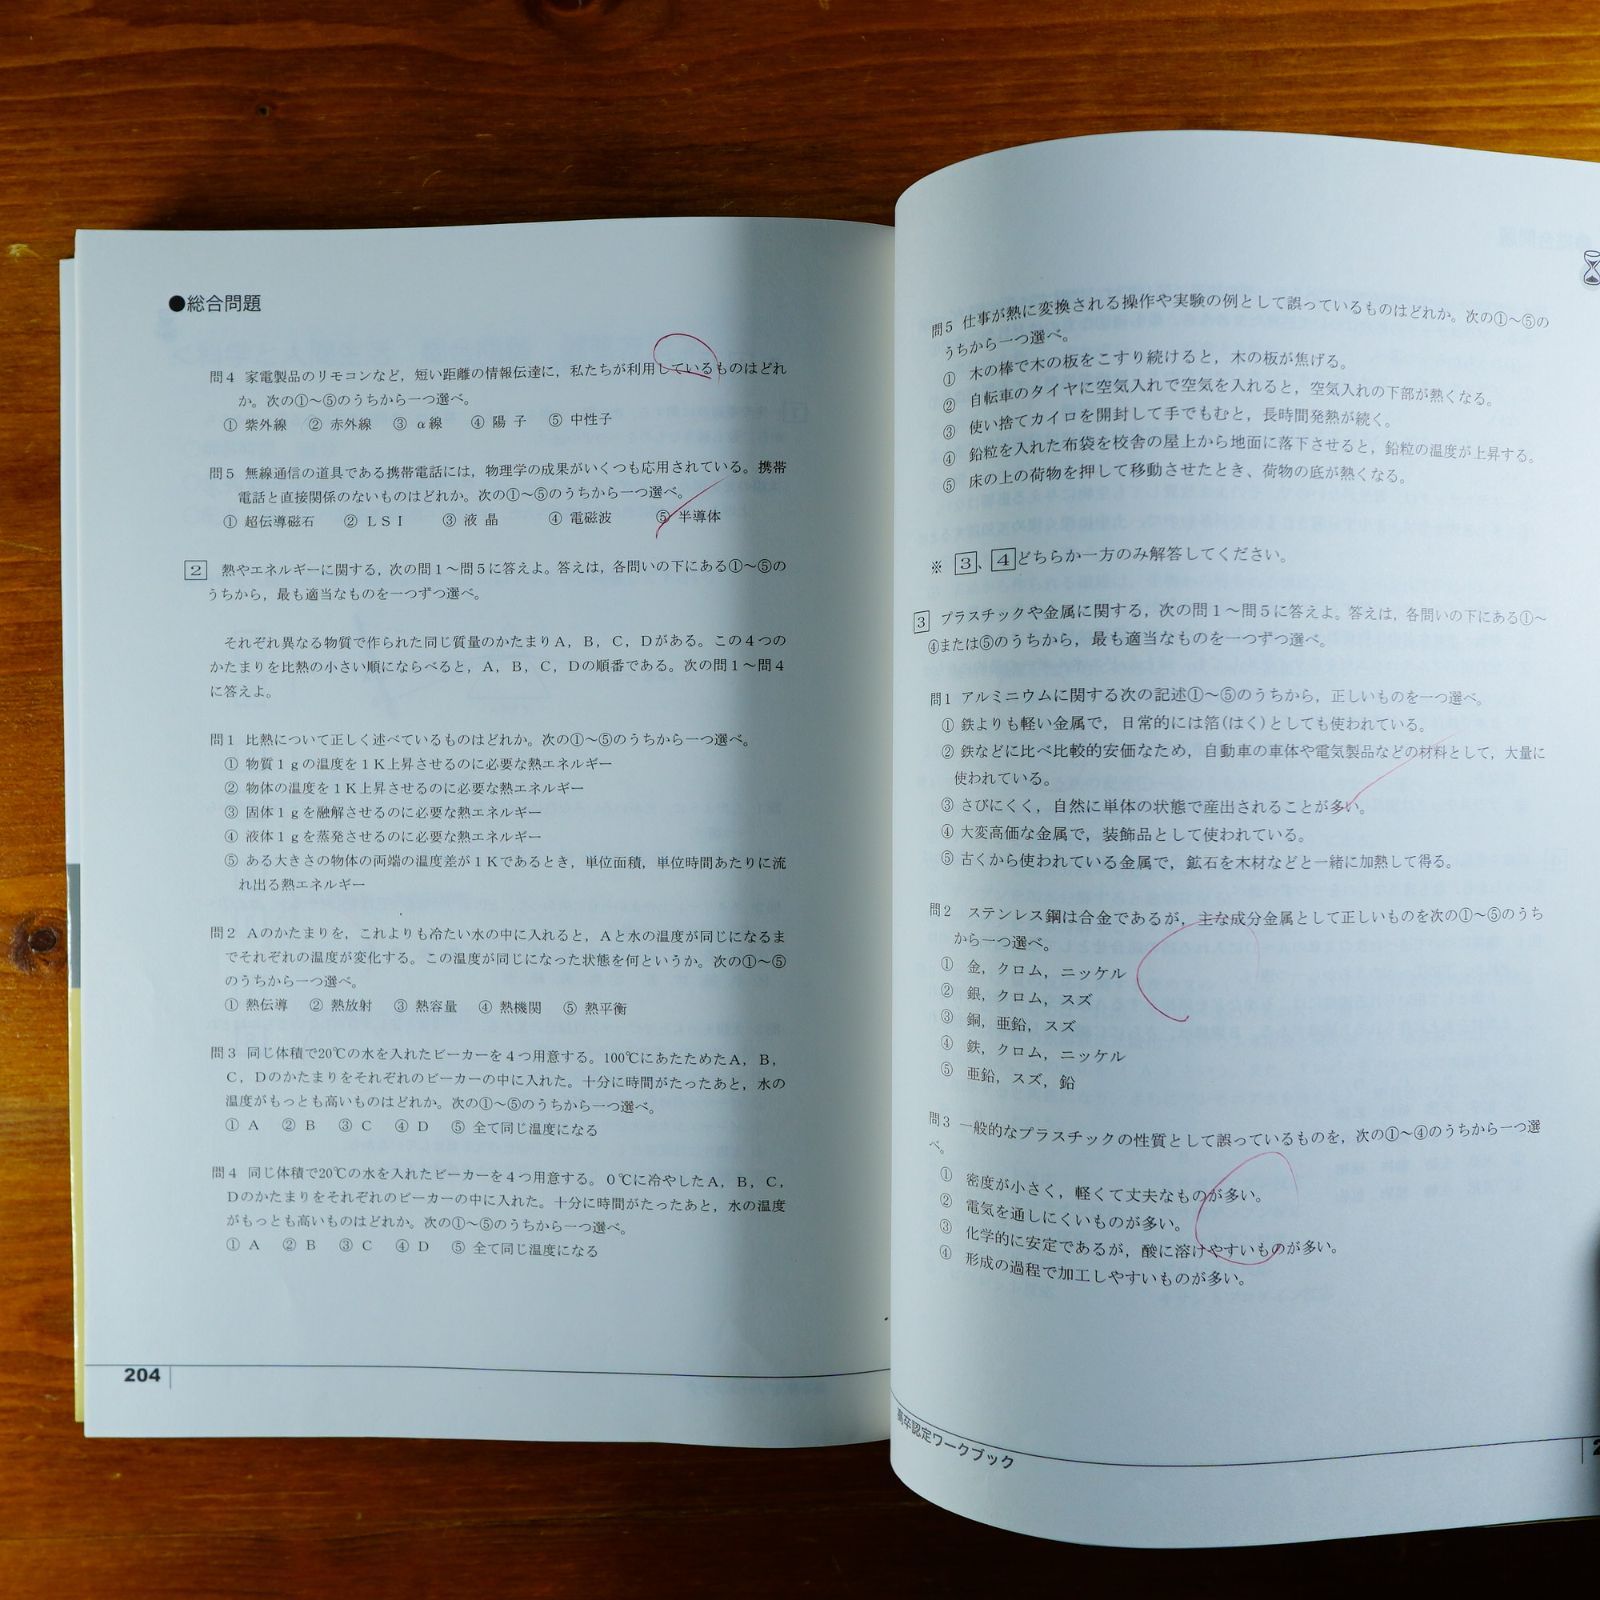 ●総合問題
問4 家電製品のリモコンなど，短い距離の情報伝達に，私たちが利用しているものはどれ
か。次の①～⑤のうちから一つ選べ。
① 紫外線 ② 赤外線 ③ α線 ④ 陽 子 ⑤ 中性子
問5 無線通信の道具である携帯電話には，物理学の成果がいくつも応用されている。携帯
電話と直接関係のないものはどれか。次の①～⑤のうちから一つ選べ。
① 超伝導磁石 ② ＬＳＩ ③ 液 晶 ④ 電磁波 ⑤ 半導体
2 熱やエネルギーに関する，次の問１～問５に答えよ。答えは，各問いの下にある①～⑤の
うちから，最も適当なものを一つずつ選べ。
それぞれ異なる物質で作られた同じ質量のかたまりＡ，Ｂ，Ｃ，Ｄがある。この４つの
かたまりを比熱の小さい順にならべると，Ａ，Ｂ，Ｃ，Ｄの順番である。次の問１～問４
に答えよ。
問1 比熱について正しく述べているものはどれか。次の①～⑤のうちから一つ選べ。
① 物質１ｇの温度を１Ｋ上昇させるのに必要な熱エネルギー
② 物体の温度を１Ｋ上昇するのに必要な熱エネルギー
③ 固体１ｇを融解させるのに必要な熱エネルギー
④ 液体１ｇを蒸発させるのに必要な熱エネルギー
⑤ ある大きさの物体の両端の温度差が１Ｋであるとき，単位面積，単位時間あたりに流
れ出る熱エネルギー
問2 Ａのかたまりを，これよりも冷たい水の中に入れると，Ａと水の温度が同じになるま
でそれぞれの温度が変化する。この温度が同じになった状態を何というか。次の①～⑤
のうちから一つ選べ。
① 熱伝導 ② 熱放射 ③ 熱容量 ④ 熱機関 ⑤ 熱平衡
問3 同じ体積で20℃の水を入れたビーカーを４つ用意する。100℃にあたためたＡ，Ｂ，
Ｃ，Ｄのかたまりをそれぞれのビーカーの中に入れた。十分に時間がたったあと，水の
温度がもっとも高いものはどれか。次の①～⑤のうちから一つ選べ。
① Ａ ② Ｂ ③ Ｃ ④ Ｄ ⑤ 全て同じ温度になる
問4 同じ体積で20℃の水を入れたビーカーを４つ用意する。０℃に冷やしたＡ，Ｂ，Ｃ，
Ｄのかたまりをそれぞれのビーカーの中に入れた。十分に時間がたったあと，水の温度
がもっとも高いものはどれか。次の①～⑤のうちから一つ選べ。
① Ａ ② Ｂ ③ Ｃ ④ Ｄ ⑤ 全て同じ温度になる
204
問5 仕事が熱に変換される操作や実験の例として誤っているものはどれか。次の①～⑤の
うちから一つ選べ。
① 木の棒で木の板をこすり続けると，木の板が焦げる。
② 自転車のタイヤに空気入れで空気を入れると，空気入れの下部が熱くなる。
③ 使い捨てカイロを開封して手でもむと，長時間発熱が続く。
④ 鉛粒を入れた布袋を校舎の屋上から地面に落下させると，鉛粒の温度が上昇する。
⑤ 床の上の荷物を押して移動させたとき、荷物の底が熱くなる。
※ 3、4どちらか一方のみ解答してください。
3 プラスチックや金属に関する，次の問１～問５に答えよ。答えは，各問いの下にある①～
④または⑤のうちから，最も適当なものを一つずつ選べ。
問1 アルミニウムに関する次の記述①～⑤のうちから，正しいものを一つ選べ。
① 鉄よりも軽い金属で，日常的には箔(はく)としても使われている。
② 鉄などに比べ比較的安価なため，自動車の車体や電気製品などの材料として，大量に
使われている。
③ さびにくく，自然に単体の状態で産出されることが多い。
④ 大変高価な金属で，装飾品として使われている。
⑤ 古くから使われている金属で，鉱石を木材などと一緒に加熱して得る。
問2 ステンレス鋼は合金であるが，主な成分金属として正しいものを次の①～⑤のうち
から一つ選べ。
① 金，クロム，ニッケル
② 銀，クロム，スズ
③ 銅，亜鉛，スズ
④ 鉄，クロム，ニッケル
⑤ 亜鉛，スズ，鉛
問3 一般的なプラスチックの性質として誤っているものを，次の①～④のうちから一つ選
べ。
① 密度が小さく，軽くて丈夫なものが多い。
② 電気を通しにくいものが多い。
③ 化学的に安定であるが，酸に溶けやすいものが多い。
④ 形成の過程で加工しやすいものが多い。
高卒認定ワークブック